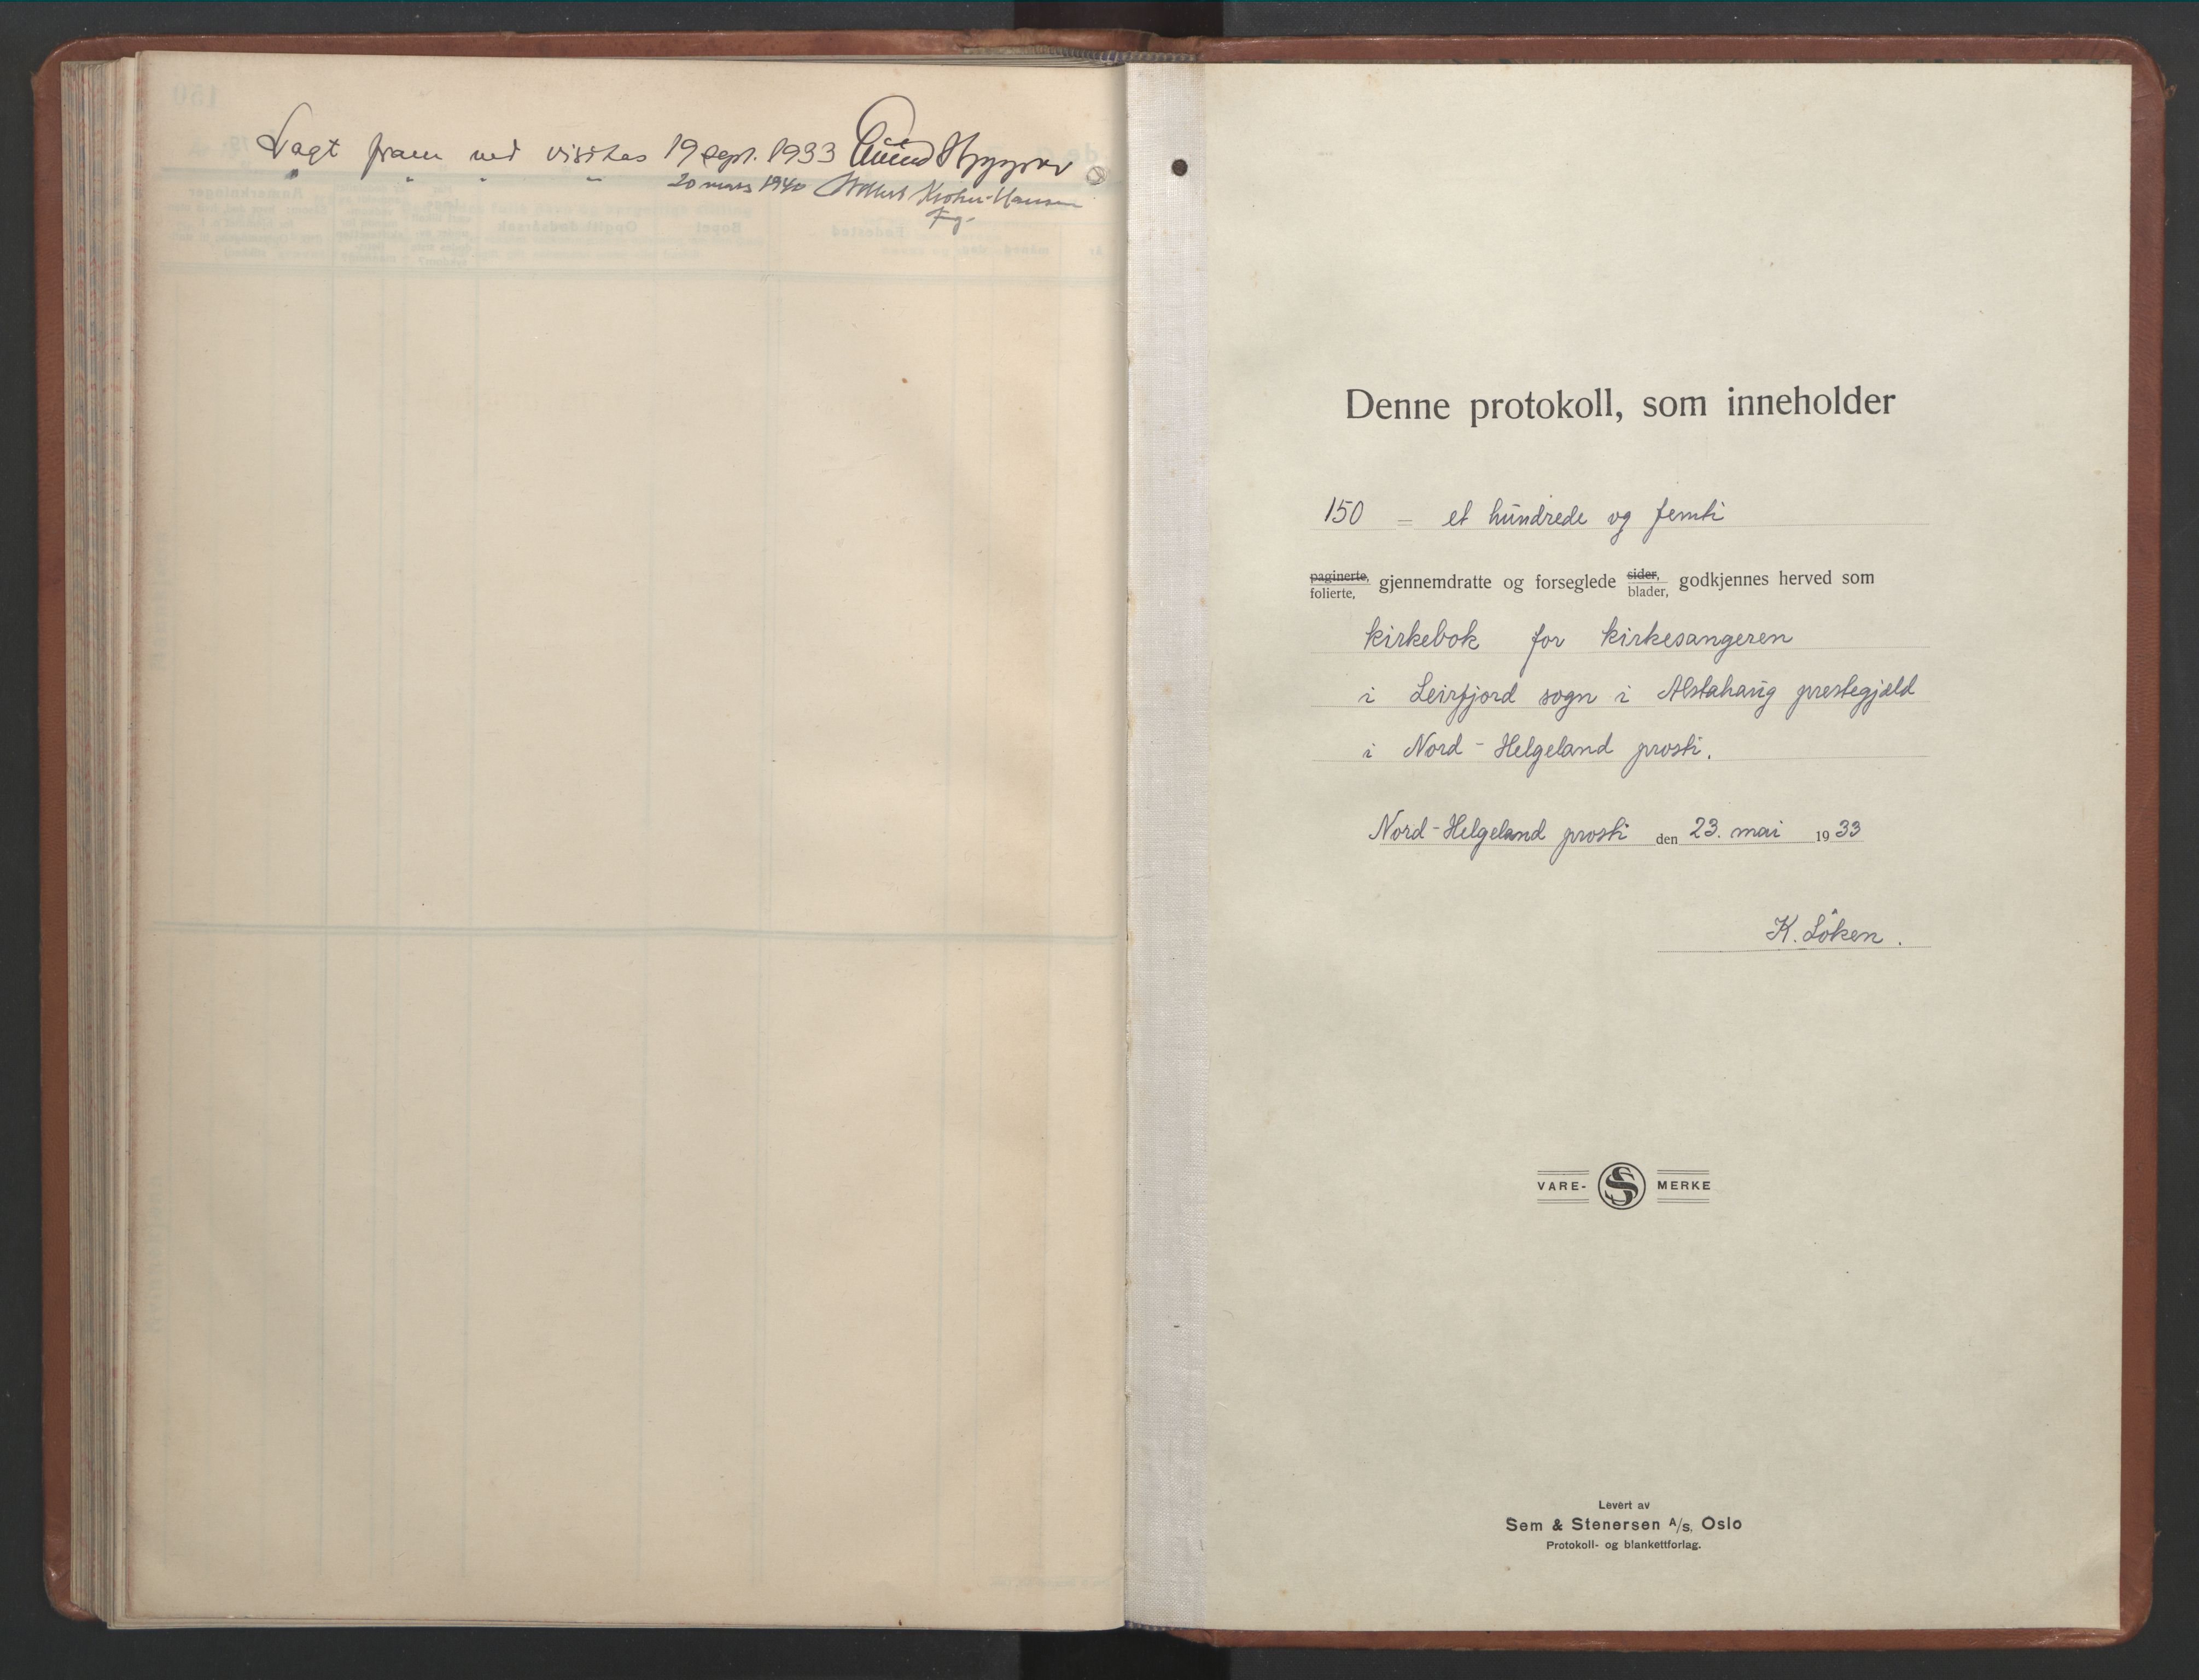 Lagt fram ved visitas 19 sept. 1933 Eivind Berggrav
" " " " 20 mars 1940 Wollert Krohn-Hansen
Denne protokoll, som inneholder
150 = et hundrede og femti
paginerte, folierte, gjennemdratte og forseglede sider, blader, godkjennes herved som
kirkebok for kirkesangeren
i Leirfjord sogn i Alstahaug prestegjæld
i Nord-Helgeland prosti.
Nord-Helgeland prosti den 23. mai 1933
K. Löken.
VARE- S MERKE
Levert av
Sem & Stenersen A/S, Oslo
Protokoll- og blankettforlag.